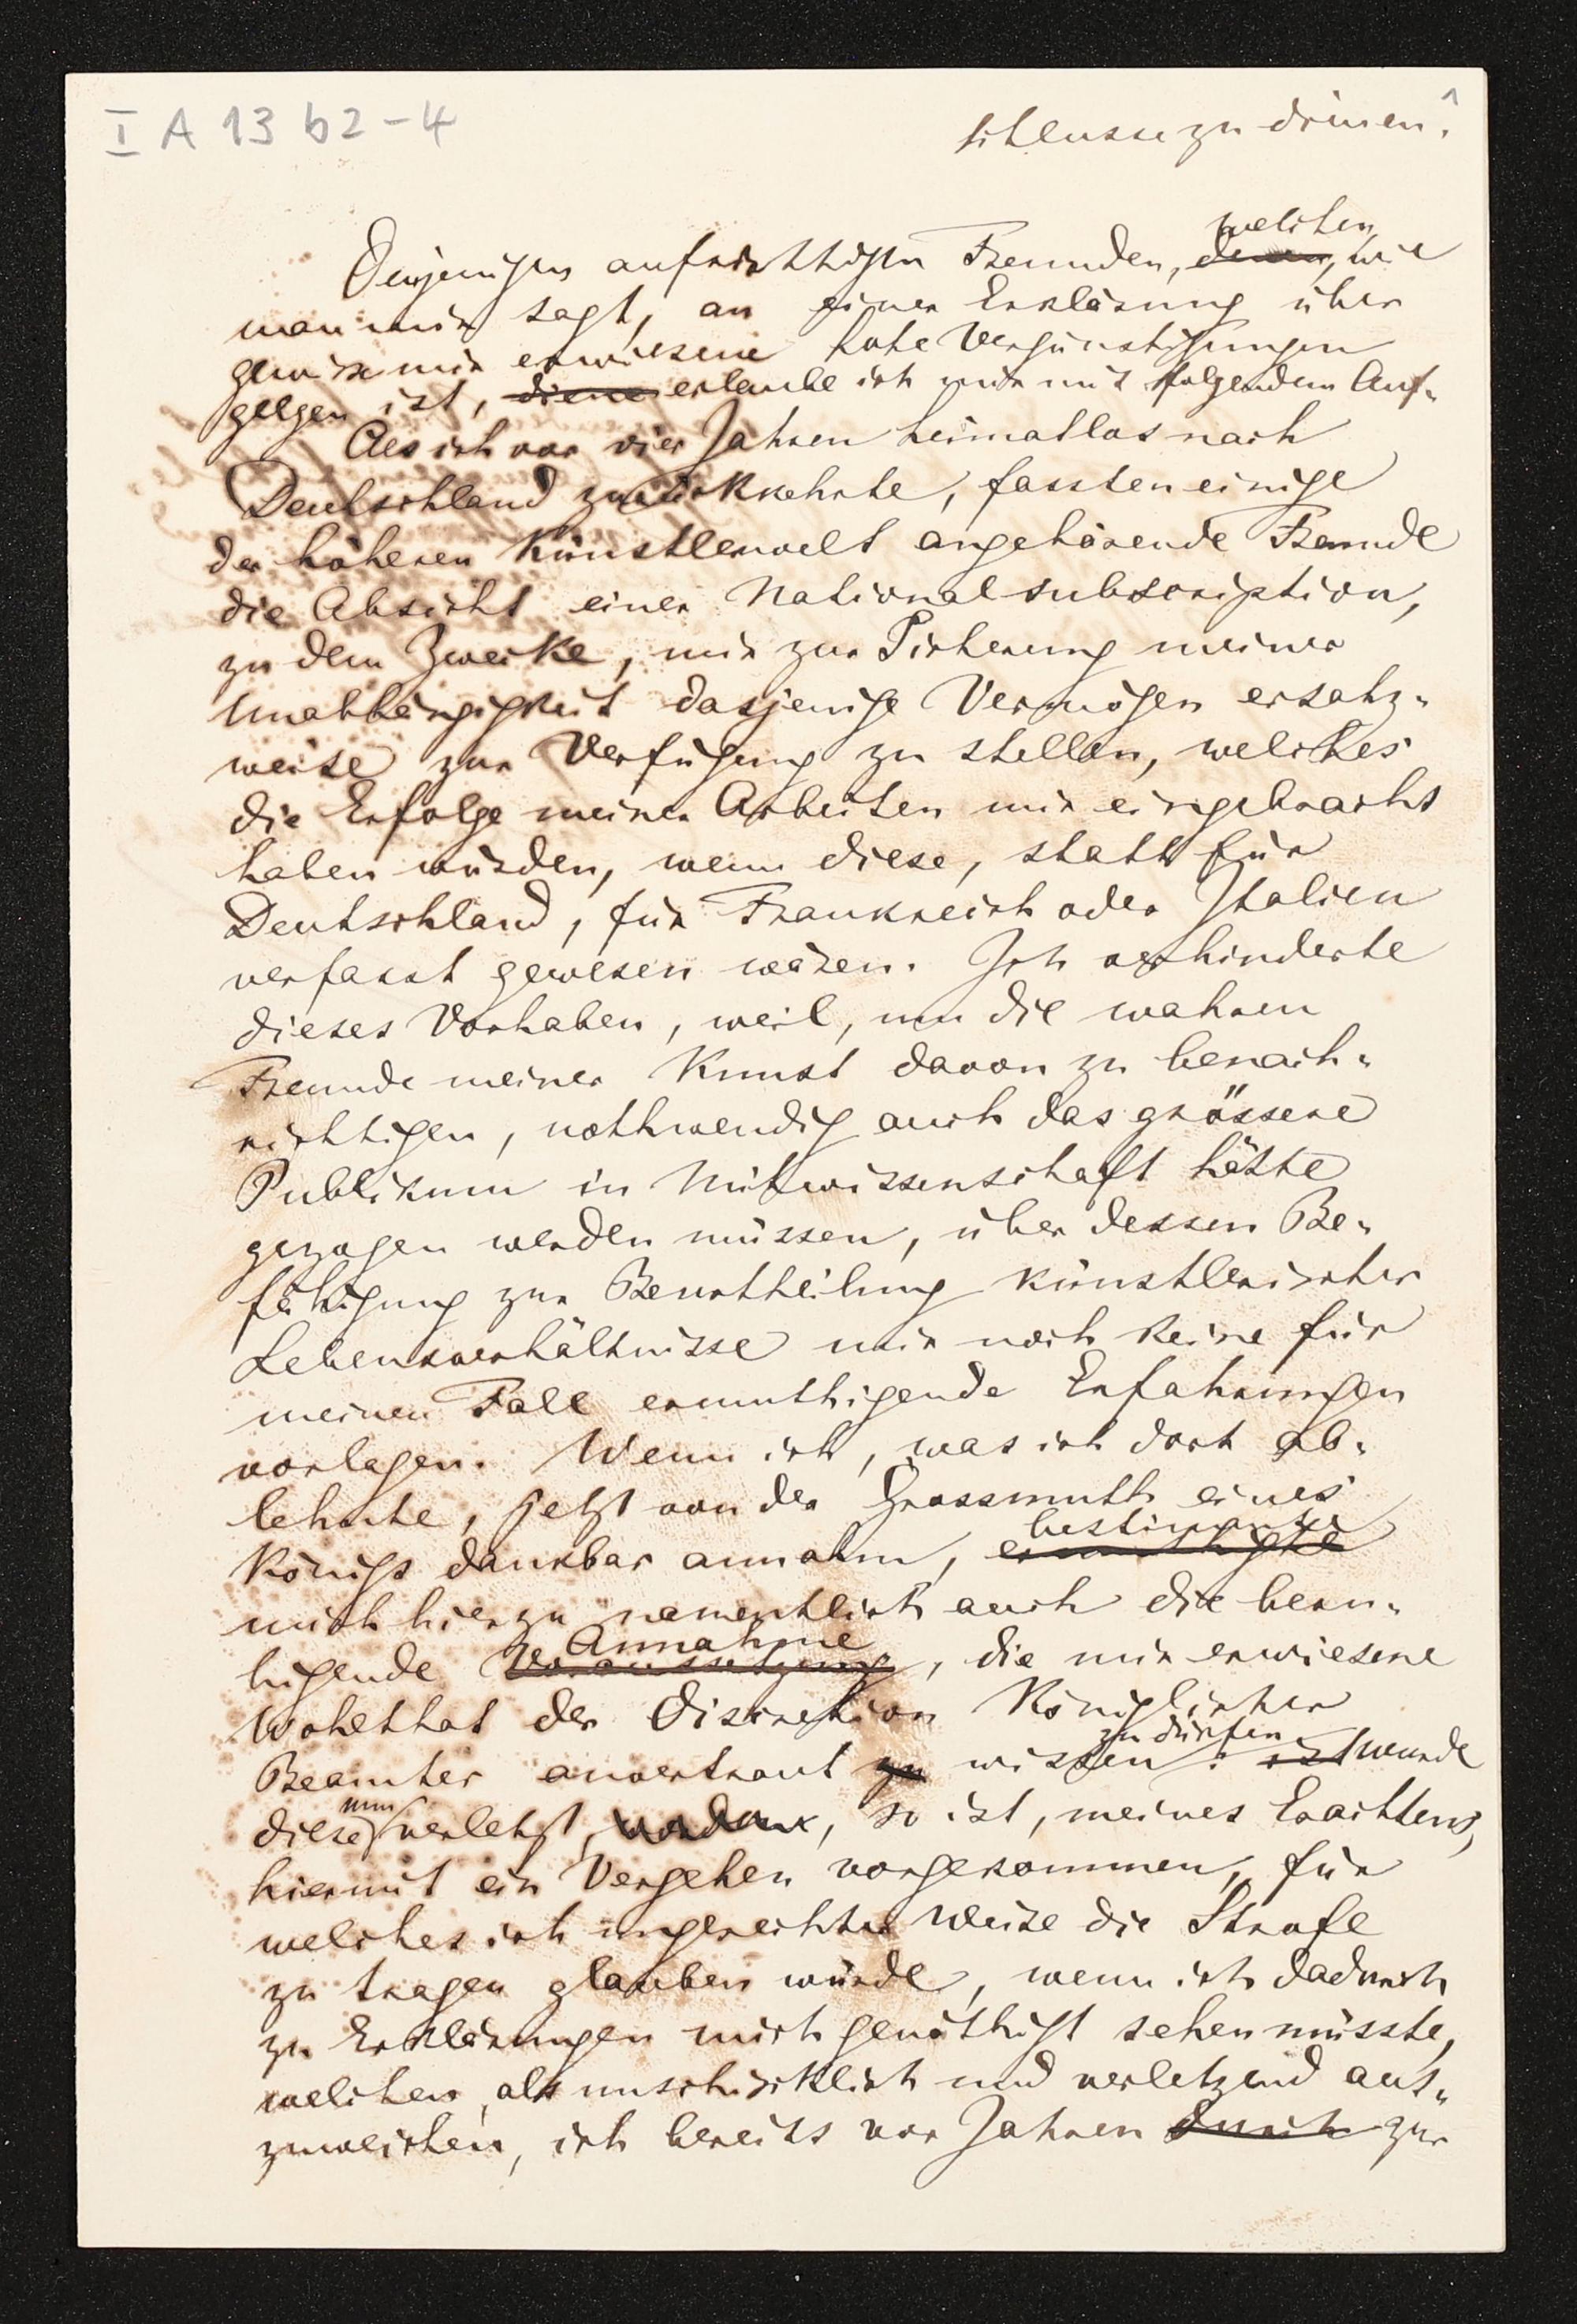 I A 13 b2-4
schlusse zu dienen.
welchen
Denjenigen aufrichtigen Freunden, denen, wie
man mir sagt, an einer Erklärung über
gewisse mir erwiesene hohe Vergünstigungen
gelgen ist, diene erlaube ich mir mit folgendem Auf-
Als ich vor vier Jahren heimathlos nach
Deutschland zurückkehrte, fassten einige
der höheren Künstlerwelt angehörende Freunde
die Absicht einer Nationalsubscription,
zu dem Zwecke, mir zur Sicherung meiner
Unabhängigkeit dasjenige Vermögen ersatz-
weise zur Verfügung zu stellen, welches
die Erfolge meiner Arbeiten mir eingebracht
haben würden, wenn diese, statt für
Deutschland, für Frankreich oder Italien
verfasst gewesen wären. Ich verhinderte
dieses Vorhaben, weil, um die wahren
Freunde meiner Kunst davon zu benach-
richtigen, nothwendig auch das grössere
Publikum in Mitwissenschaft hätte
gezogen werden müssen, über dessen Be-
fähigung zur Beurtheilung künstlerischer
Lebensverhältnisse mir noch keine für
meinen Fall ermuthigende Erfahrungen
vorlagen. Wenn ich, was ich dort ab-
lehnte, jetzt von der Grossmuth eines
bestimmte
Königs dankbar annahm, ermuthigte
mich hierzu namentlich auch die beru-
Annahme
higende Voraussetzung, die mir erwiesene
Wohlthat der Discretion Königlicher
zu dürfen
Beamter anvertraut zu wissen. ist wurde
nun
diese verletzt, worden, so ist, meines Erachtens,
hiermit ein Vergehen vorgekommen, für
welches ich ungerechter Weise die Strafe
zu tragen glauben würde, wenn ich dadurch
zu Erklärungen mich genöthigt sehen müsste,
welchen, als unschicklich und verletzend aus-
zuweichen, ich bereits vor Jahren durch zur